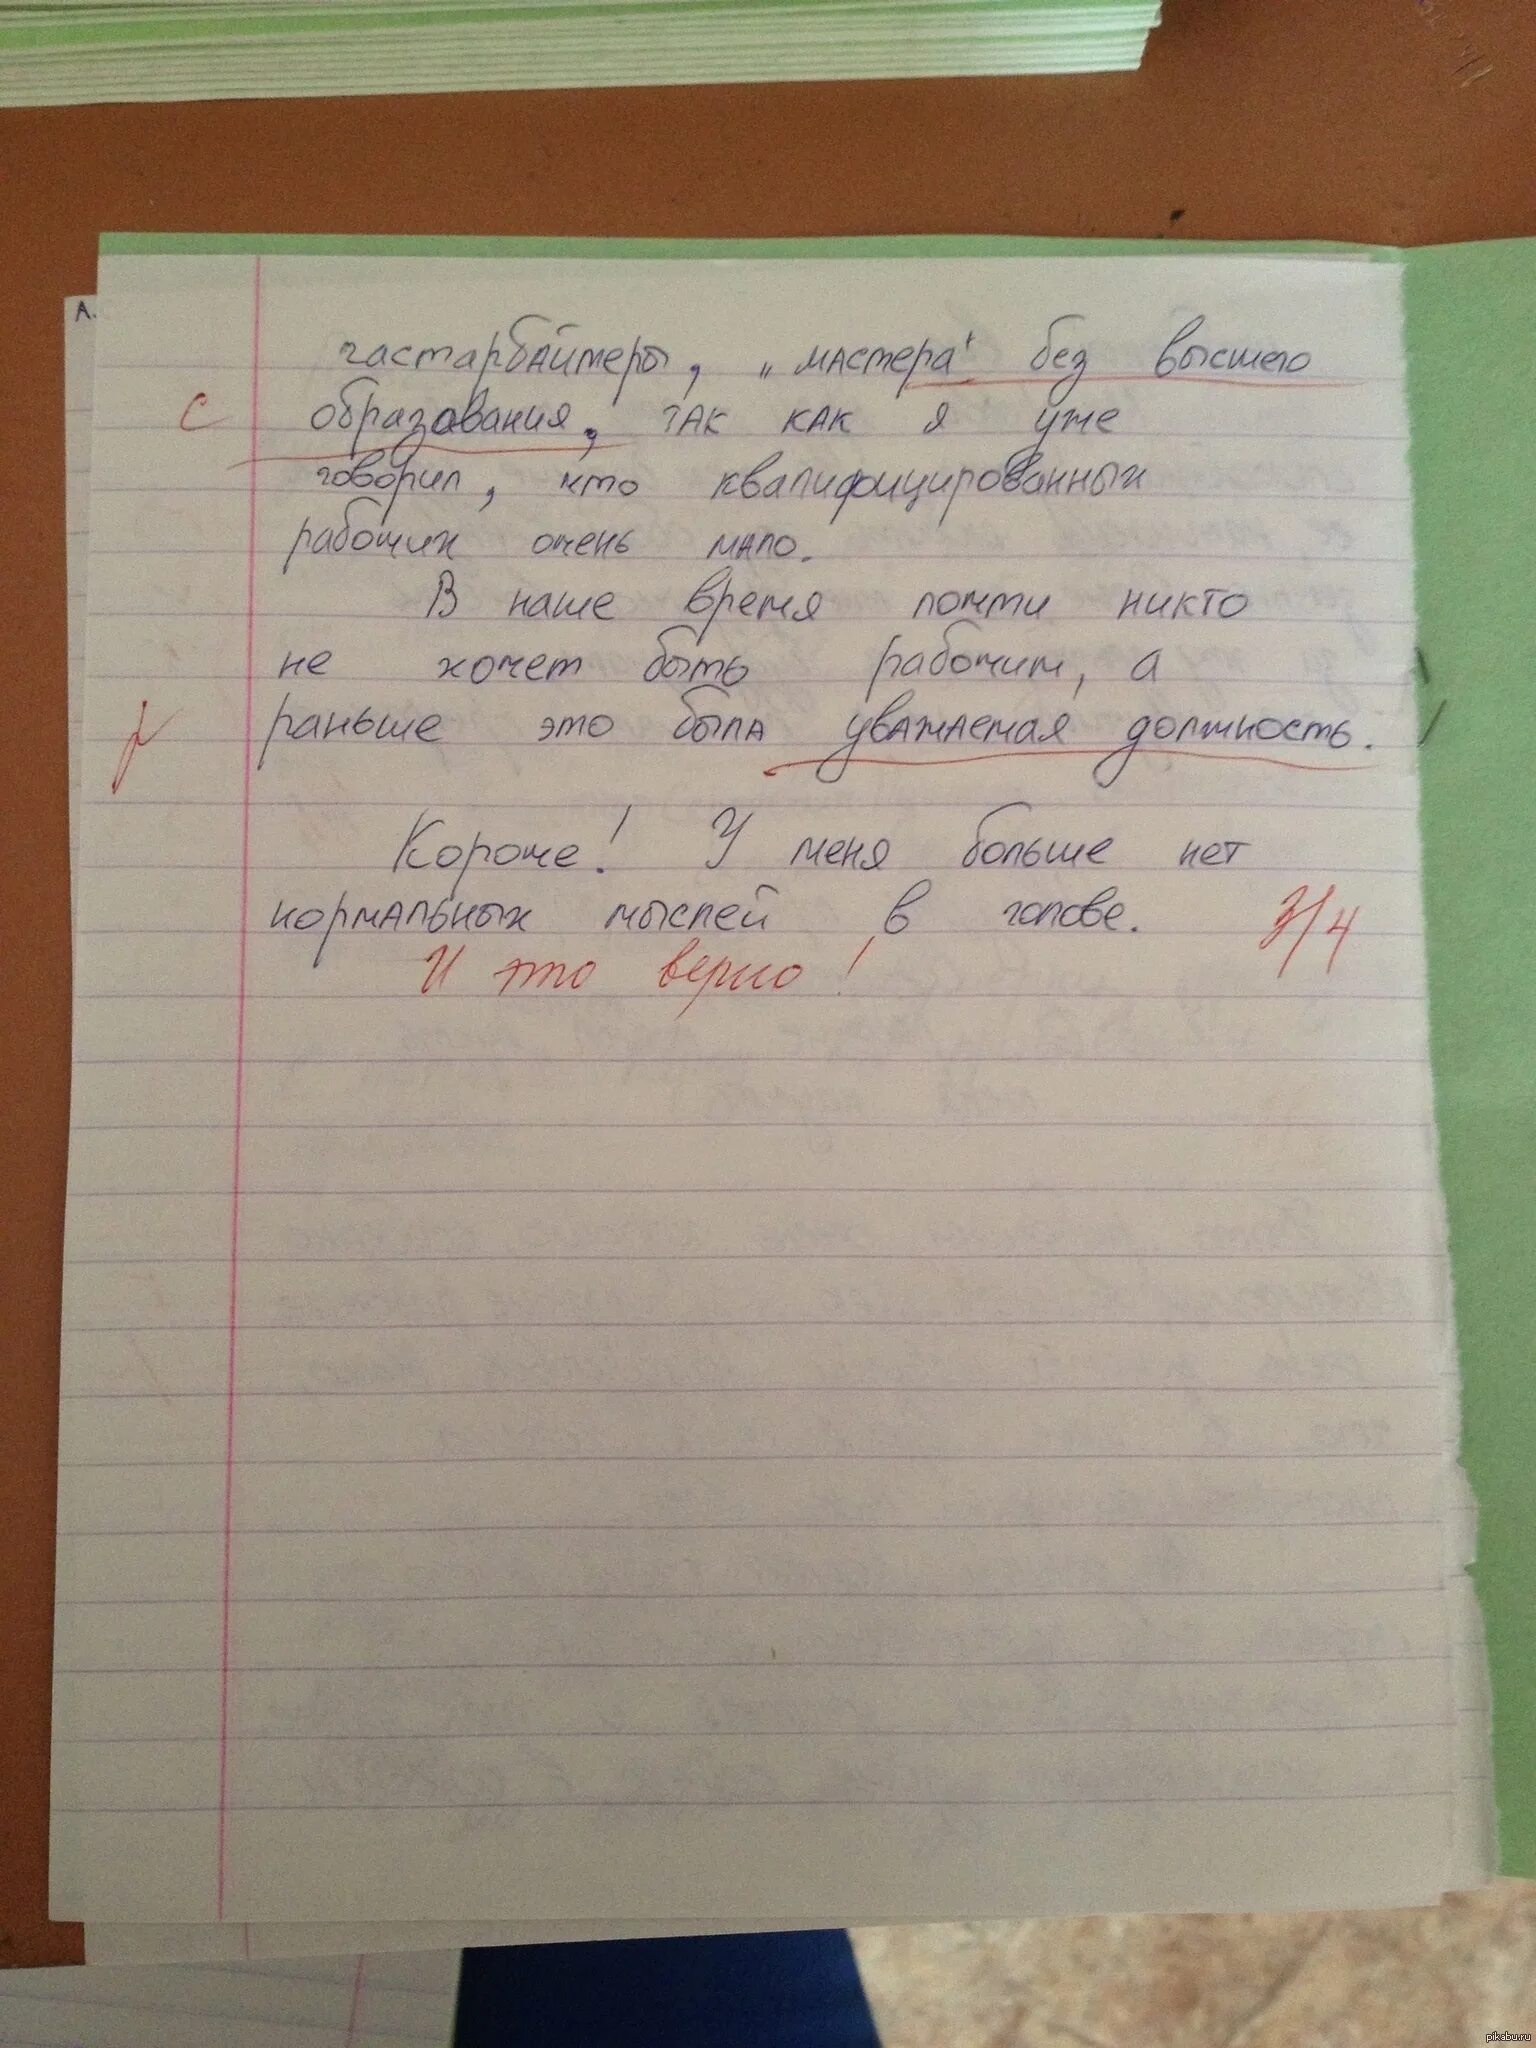 А.
гастарбайтеры, „мастера" без высшего
с образования, так как я уже
говорил, что квалифицированных
рабочих очень мало.
В наше время почти никто
не хочет быть рабочим, а
раньше это была уважаемая должность.
Короче! У меня больше нет
нормальных мыслей в голове. 3/4
И это верно!
pikabu.ru